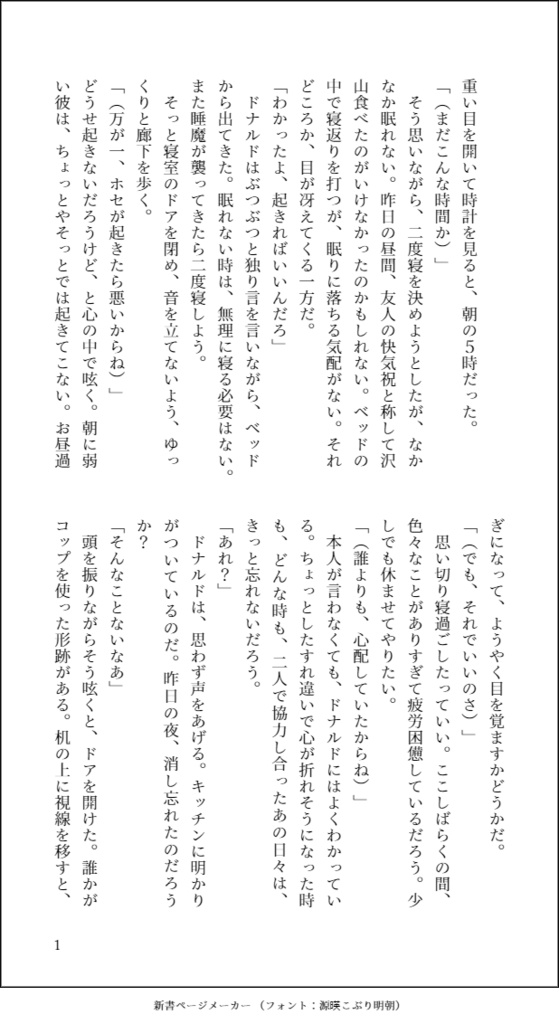 重い目を開いて時計を見ると、朝の５時だった。
「（まだこんな時間か）」
　そう思いながら、二度寝を決めようとしたが、なか
なか眠れない。昨日の昼間、友人の快気祝と称して沢
山食べたのがいけなかったのかもしれない。ベッドの
中で寝返りを打つが、眠りに落ちる気配がない。それ
どころか、目が冴えてくる一方だ。
「わかったよ、起きればいいんだろ」
　ドナルドはぶつぶつと独り言を言いながら、ベッド
から出てきた。眠れない時は、無理に寝る必要はない。
また睡魔が襲ってきたら二度寝しよう。
　そっと寝室のドアを閉め、音を立てないよう、ゆっ
くりと廊下を歩く。
「（万が一、ホセが起きたら悪いからね）」
どうせ起きないだろうけど、と心の中で呟く。朝に弱
い彼は、ちょっとやそっとでは起きてこない。お昼過
ぎになって、ようやく目を覚ますかどうかだ。
「（でも、それでいいのさ）」
　思い切り寝過ごしたっていい。ここしばらくの間、
色々なことがありすぎて疲労困憊しているだろう。少
しでも休ませてやりたい。
「（誰よりも、心配していたからね）」
　本人が言わなくても、ドナルドにはよくわかってい
る。ちょっとしたすれ違いで心が折れそうになった時
も、どんな時も、二人で協力し合ったあの日々は、
きっと忘れないだろう。
「あれ？」
　ドナルドは、思わず声をあげる。キッチンに明かり
がついているのだ。昨日の夜、消し忘れたのだろう
か？
「そんなことないなあ」
　頭を振りながらそう呟くと、ドアを開けた。誰かが
コップを使った形跡がある。机の上に視線を移すと、
1
新書ページメーカー（フォント：源暎こぶり明朝）